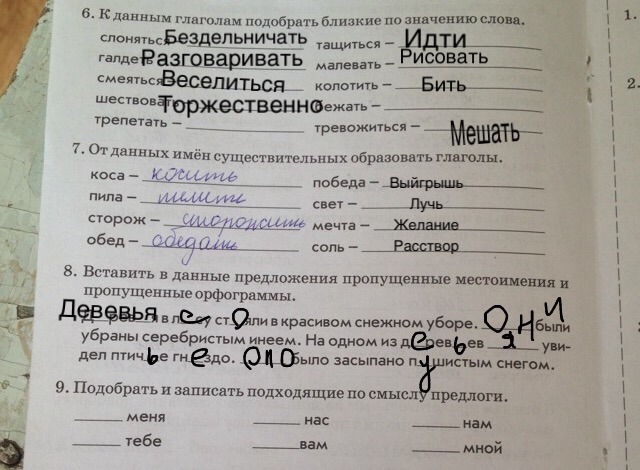 6. К данным глаголам подобрать близкие по значению слова.
слоняться Бездельничать тащиться – Идти
галдеть Разговаривать малевать – Рисовать
смеяться Веселиться колотить – Бить
шествовать Торжественно бежать –
трепетать – тревожиться – Мешать
7. От данных имён существительных образовать глаголы.
коса – косить победа – Выйгрышь
пила – пилить свет – Лучь
сторож – сторожить мечта – Желание
обед – обедать соль – Расствор
8. Вставить в данные предложения пропущенные местоимения и
пропущенные орфограммы.
Девевья в лесу стояли в красивом снежном уборе. Они были
убраны серебристым инеем. На одном из деревьев я уви-
дел птичье гнездо. Оно было засыпано пушистым снегом.
9. Подобрать и записать подходящие по смыслу предлоги.
меня нас нам
тебе вам мной
1.
2.